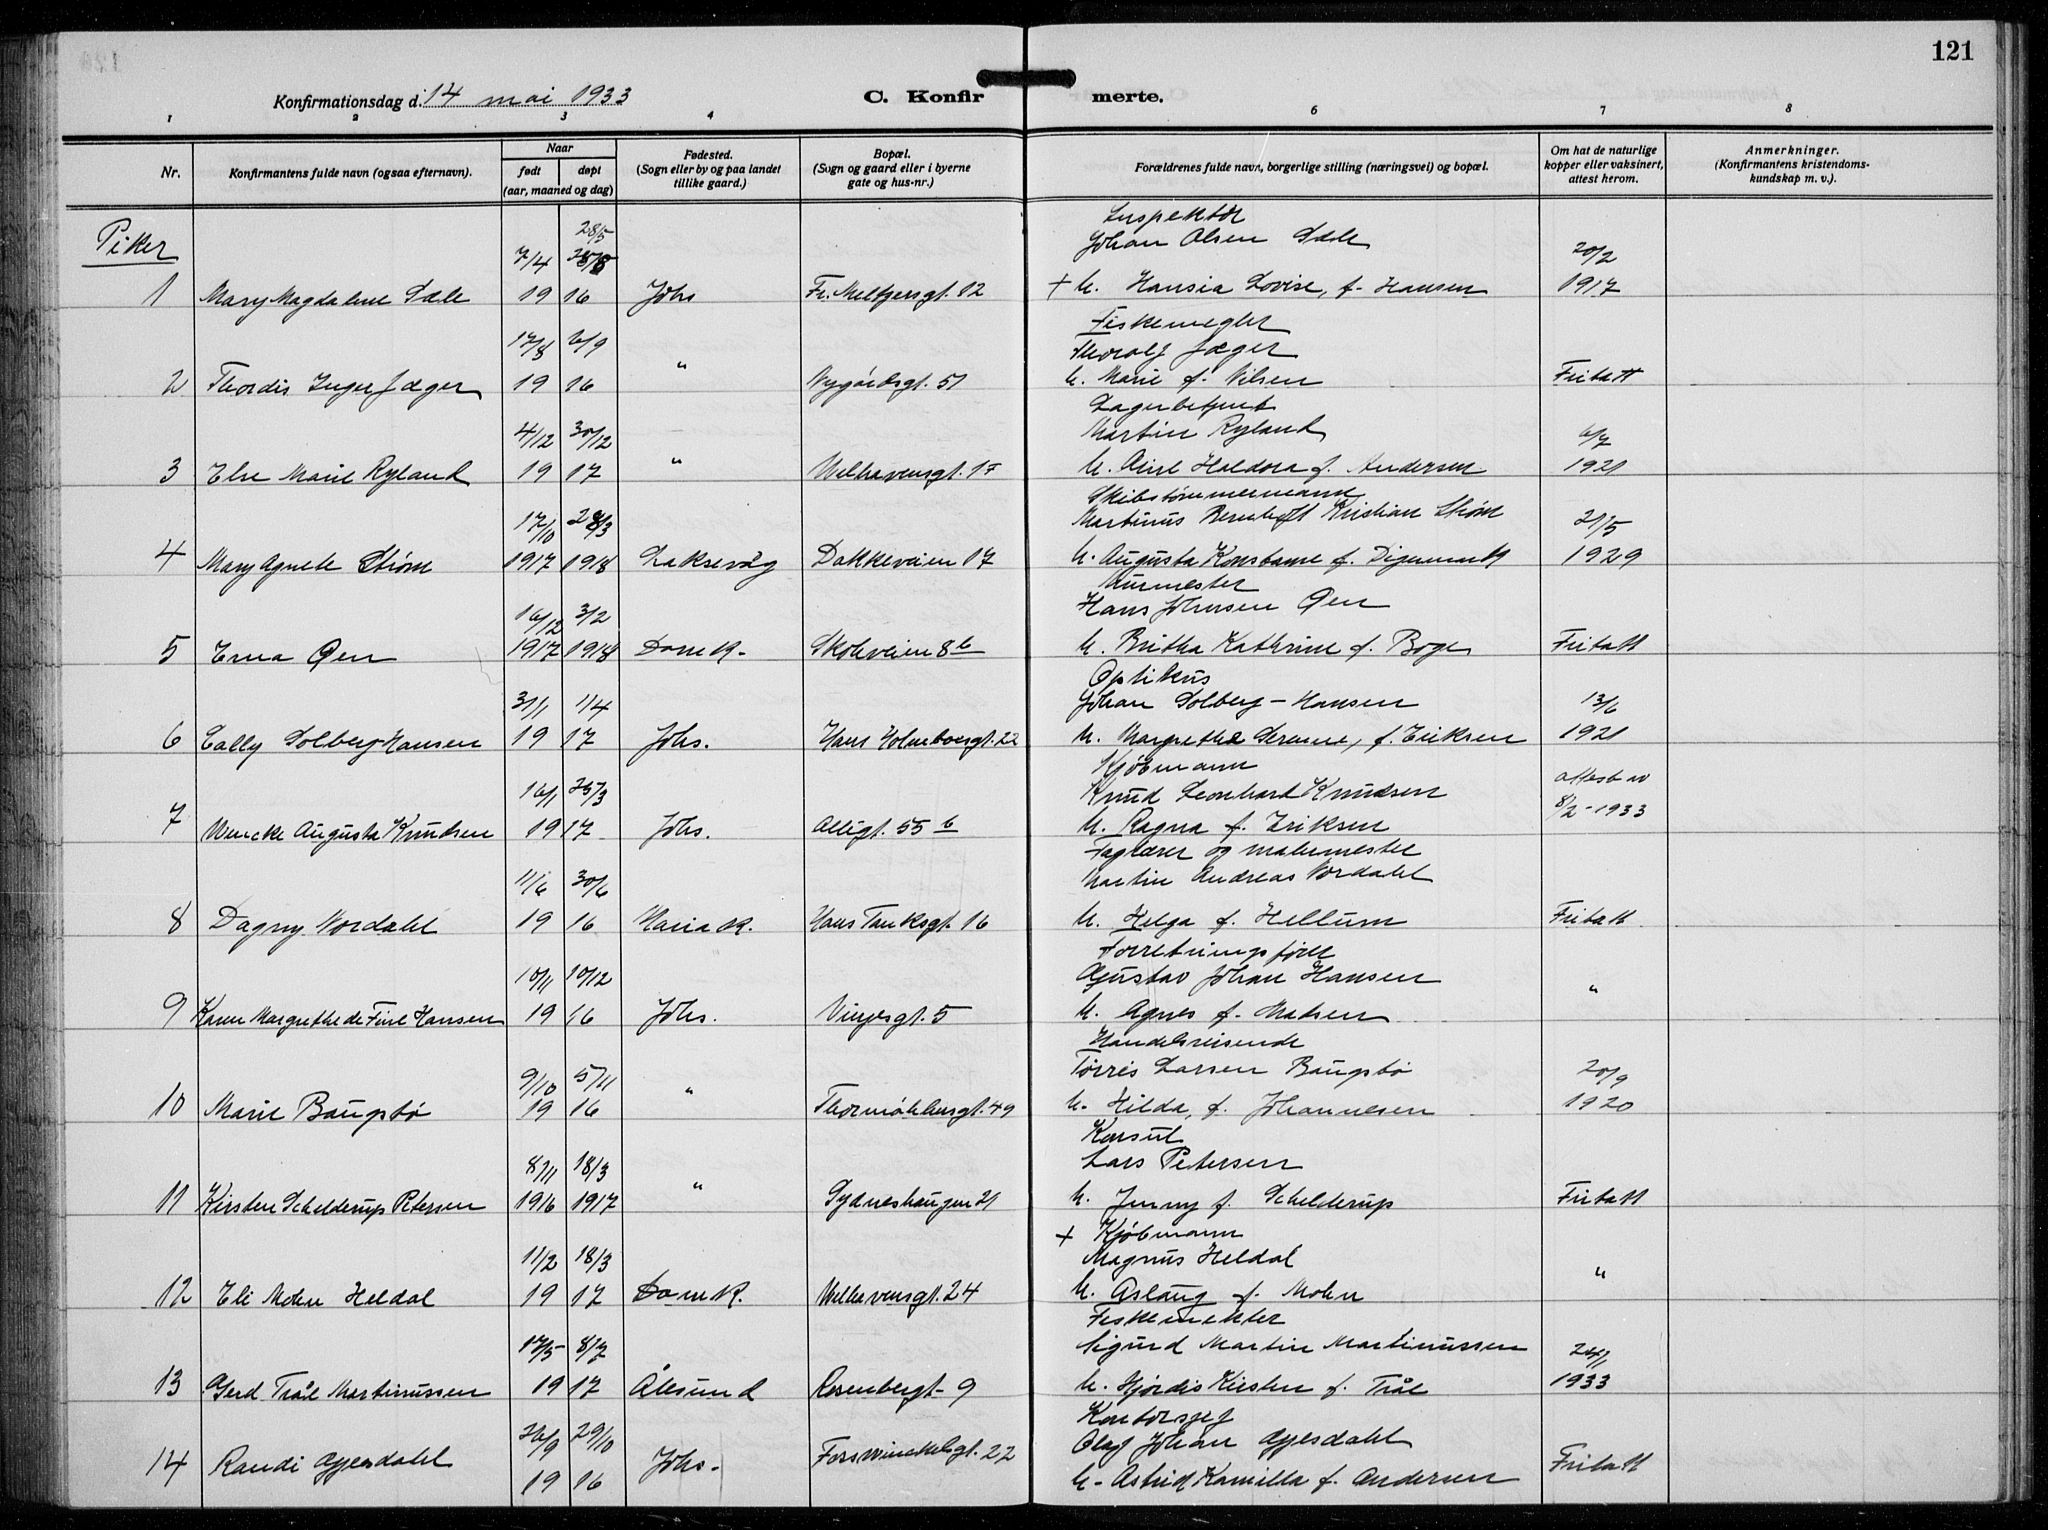 121
Konfirmationsdag d. 14 mai 1933
C. Konfirmerte.
1 2 3 4 6 7 8
Nr. Konfirmantens fulde navn (ogsaa efternavn). Naar født døpt (aar, maaned og dag) Fødested. (Sogn eller by og paa landet tillike gaard.) Bopæl. (Sogn og gaard eller i byerne gate og hus-nr.) Forældrenes fulde navn, borgerlige stilling (næringsvei) og bopæl. Om hat de naturlige kopper eller vaksinert, attest herom. Anmerkninger. (Konfirmantens kristendomskundskap m. v.).
Piker
28/5 Inspektør
7/4 Johan Olsen Sæle 20/2
1 Mary Magdalene Sæle 19 16 Johs Fr. Meltzersgt. 12 + h. Hansia Lovise, f. Hansen 1917
Fiskemegler
17/8 6/9 Thoralf Jæger
2 Thordis Inger Jæger 19 16 " Nygårdsgt. 51 h. Marie f. Nilsen Fritatt
Lagerbetjent
4/12 30/12 Martin Ryland 6/7
3 Else Marie Ryland 19 17 " Welhavensgt. 17 h. Haldora f. Andersen 1921
Skibstømmermann
17/10 28/3 Martinus Berenhoft Kristian Strøm 21/5
4 Mary Agnete Strøm 1917 1918 Laksevåg Dokkeveien 17 h. Augusta Konstanse f. 1929
Murmester
16/12 3/2 Hans Johnsen Øen
5 Erna Øen 1917 1918 Domk. Skoleveien 8 b h. Britha Kathrine f. Boge Fritatt
Optikus
31/1 1/4 Johan Solberg-Hansen 13/6
6 Cally Solberg Hansen 19 17 Johs. Hans Holmboesgt. 22 h. Margrethe f. Eriksen 1921
Kjøbmann
16/1 25/3 Knud Leonhard Knudsen attest av
7 Wencke Augusta Knudsen 19 17 Johs. Allégt. 55 b h. Ragna f. Eriksen 8/2-1933
Faglærer og malermester
11/6 30/6 Martin Andreas Nordahl
8 Dagny Nordahl 19 16 Maria K. Hans Tanksgt. 16 h. Helga f. Hellum Fritatt
Forretningsfører
10/11 10/12 Gustav Johan Hansen
9 Karen Margrethe de Fine Hansen 19 16 Johs. Vinjesgt. 5 h. Agnes f. Madsen "
Handelsreisende
9/10 5/11 Tørris Larsen Baugstø 20/9
10 Marie Baugstø 19 16 " Thormøhlensgt. 49 h. Hilda, f. Johannesen 1920
Konsul
8/11 18/3 Lars Petersen
11 Kirsten Schelderup Petersen 1916 1917 " Sydneshaugen 21 h. Jenny f. Schelderup Fritatt
+ Kjøbmann
11/2 18/3 Magnus Heldal
12 Eli Mohn Heldal 19 17 Domk. Welhavensgt. 24 h. Aslaug f. Mohn "
Fiskemekler
17/5 8/7 Sigurd Martin Martinussen 24/1
13 Gerd Tråe Martinussen 19 17 Ålesund Rosenbergt. 9 h. Hjørdis Kirsten f. Tråe 1933
Kontorsjef
26/9 29/10 Olaf Johan Gjesdahl
14 Randi Gjesdahl 19 16 Johs. Fosswinckelsgt. 22 h. Astrid Kamilla f. Andersen Fritatt